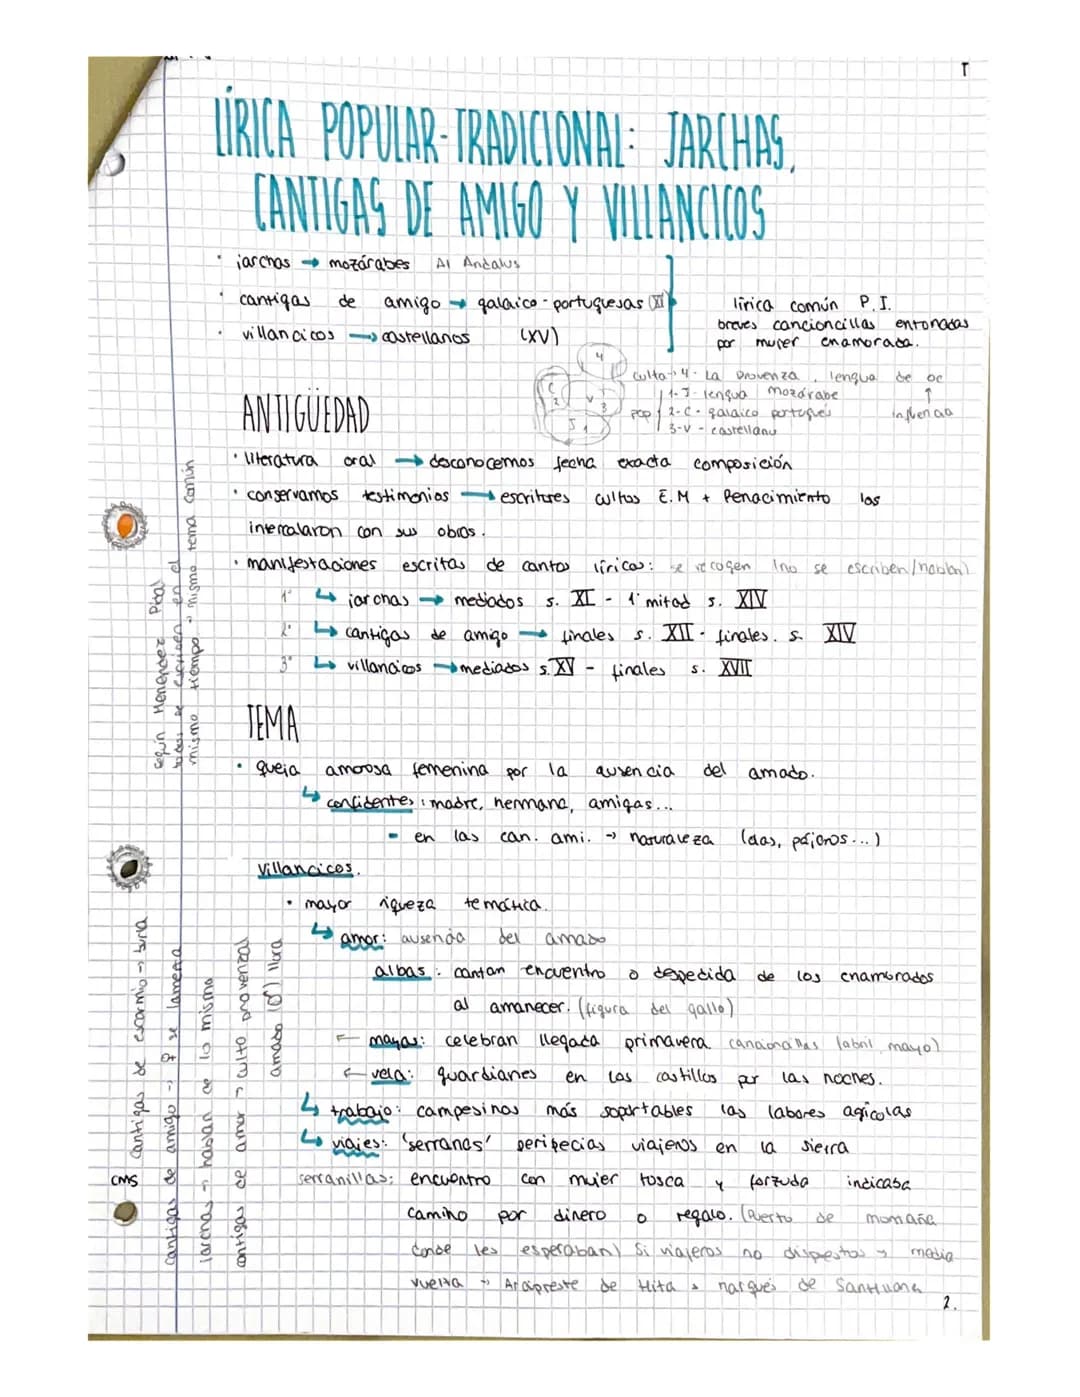 T
LÍRICA POPULAR-TRADICIONAL: JARCHAS,
CANTIGAS DE AMIGO Y VILLANCICOS
• jarchas → mozárabes Al Andalus
• cantigas de amigo → galaico-portuguesas (XII)
• villancicos → castellanos (XV)
lírica común P.I.
breves cancioncillas entonadas
por mujer enamorada.
4
C 2 V 3
J 1
culto → 4 - La Provenza, lengua de oc
pop { 1-J- lengua mozárabe
2-C- galaico portugués
3-V- castellano
↑ influencia
ANTIGÜEDAD
• literatura oral → desconocemos fecha exacta composición
• conservamos testimonios → escritores cultos E.M + Renacimiento los
intercalaron con sus obras.
• manifestaciones escritas de cantos líricos: se recogen (no se escriben/hablan)
1º ↳ jarchas → mediados s. XI - 1ª mitad s. XIV
2º ↳ cantigas de amigo → finales s. XII - finales. s. XIV
3º ↳ villancicos → mediados s. XV - finales s. XVII
TEMA
• queja amorosa femenina por la ausencia del amado.
↳ confidentes: madre, hermana, amigas...
- en las can. ami. → naturaleza (olas, pájaros...)
Villancicos.
• mayor riqueza temática.
↳ amor: ausencia del amado
albas: cantan encuentro o despedida de los enamorados
al amanecer. (figura del gallo)
← mayas: celebran llegada primavera. cancioncillas (abril, mayo)
← vela: guardianes en los castillos por las noches.
↳ trabajo: campesinos más soportables las labores agícolas
↳ viajes: 'serranas' peripecias viajeros en la sierra
serranillas: encuentro con mujer tosca y forzuda indicaba
camino por dinero o regalo. (Puerto de momaña
donde les esperaban) Si viajeros no dispuestos → media
vuelta → Arcipreste de Hita, marqués de Santillana
2.
según Menéndez Pidal
todas se escriben en el
mismo tiempo " mismo tema común
Cantigas de escarmio → burla
cantigas de amigo → ♀ se lamenta
jarchas → hablan de lo mismo
cantigas de amor → culto provenzal
amado (♂) llora
CMS